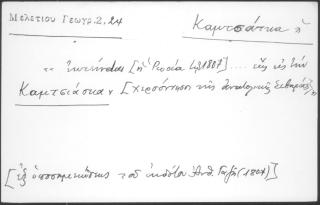 Μελετίου Γεωγρ. 2, 24
Καμτσάτκα ἡ
" ἐκτείνεται [ἡ Ρωσία 1807] ... ἕως εἰς τὴν
Καμτσιάσκαν [χερσόνησον τῆς ἀνατολικῆς Σιβηρίας]"
[ἐξ ὑποσημειώσεως τοῦ ἐκδότου Ἀνθ. Γαζῆ (1807)]